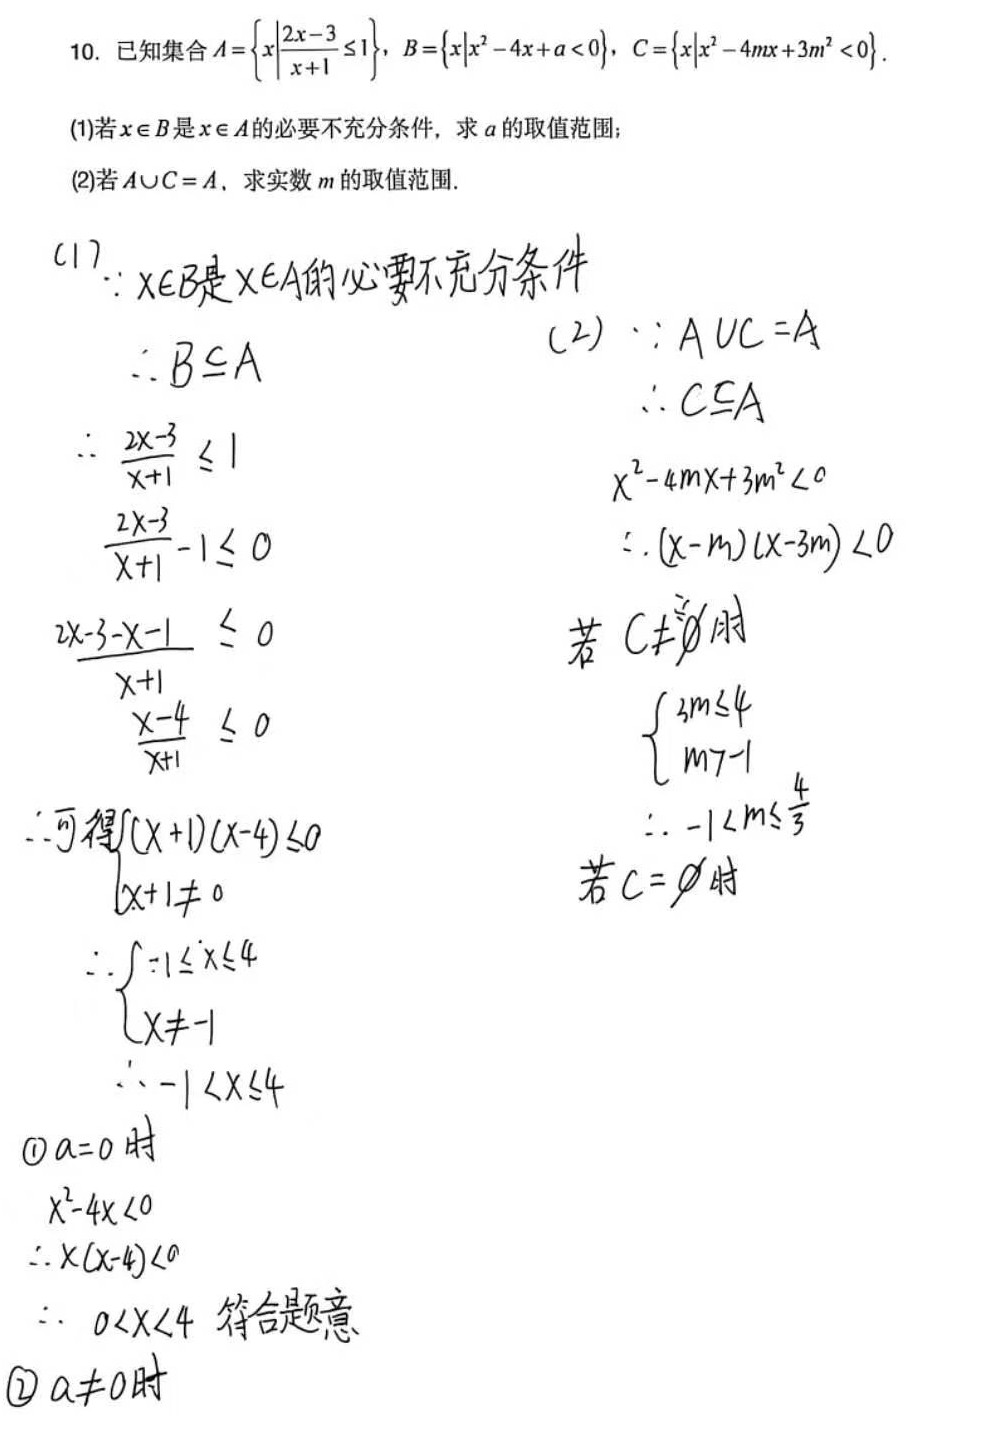 10. 已知集合 A={x|(2x-3)/(x+1)≤1}，B={x|x²-4x+a<0}，C={x|x²-4mx+3m²<0}.
(1)若x∈B是x∈A的必要不充分条件，求a的取值范围；
(2)若A∪C=A，求实数m的取值范围.
(1)
∵ x∈B是x∈A的必要不充分条件
∴ B⊆A
∴ (2x-3)/(x+1) ≤ 1
(2x-3)/(x+1) -1 ≤ 0
(2x-3-x-1)/(x+1) ≤ 0
(x-4)/(x+1) ≤ 0
∴可得{(x+1)(x-4)≤0
x+1≠0
∴{-1≤x≤4
x≠-1
∴ -1<x≤4
① a=0时
x²-4x<0
∴x(x-4)<0
∴ 0<x<4 符合题意
② a≠0时
(2) ∵ A∪C=A
∴ C⊆A
x²-4mx+3m²<0
∴(x-m)(x-3m)<0
若 C≠∅时
{3m≤4
m>-1
∴ -1<m≤4/3
若C=∅时